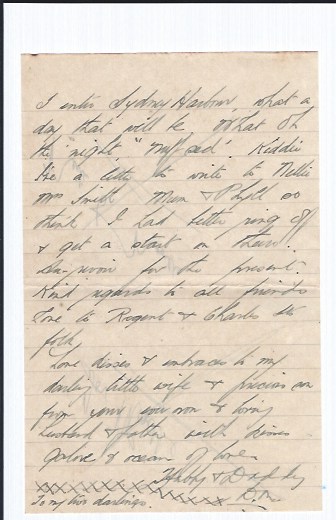 I enter Sydney Harbour, what a
day that will be. What Oh
the night, " ". Kiddie
I've a letter to write to Nellie
Mrs Smith Mum & Phyll so
think I had better ring off
& get a start on them.
Au-revoir for the present.
Kind regards to all friends
love to Regent & Charles St
folk,
Love kisses & embraces to my
darling little wife & precious son
from your own & loving
husband & father with kisses
galore & oceans of love
Hubby & Daddy
xxxxxxxxxxxxxxxxxx
To my two darlings.